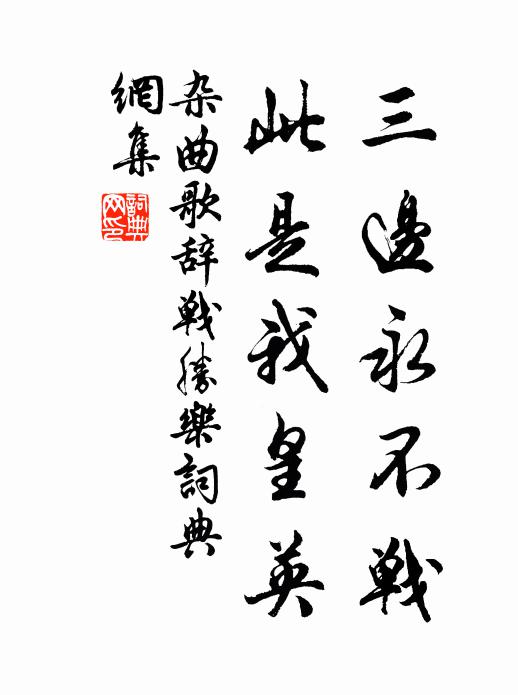 三邊永不戰
此是我皇英
杂曲歌辞戰勝樂詞典
網集
詞典
网印